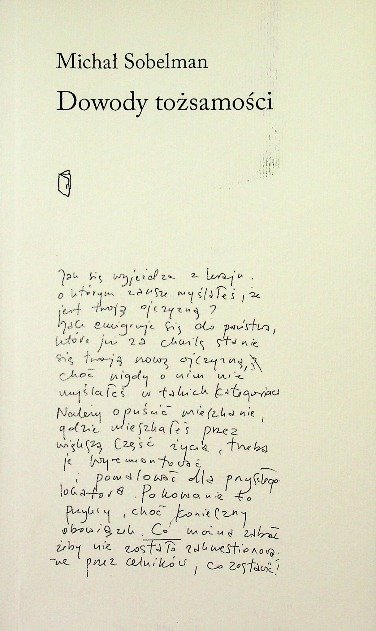 Michał Sobelman
Dowody tożsamości
Jak się wyjeżdża z kraju
o którym zawsze myślałeś, że
jest twoją ojczyzną?
Jak emigruje się do państwa,
które już za chwilę stanie
się twoją nową ojczyzną,
choć nigdy o nim nie
myślałeś w takich kategoriach
Należy opuścić mieszkanie,
gdzie mieszkałeś przez
większą część życia, trzeba
je wyremontować
i pomalować dla przyszłego
lokatora. Pakowanie to
przykry, choć konieczny
obowiązek. Co można zabrać
żeby nie zostało zakwestionowa-
ne przez celników, co zostawić?